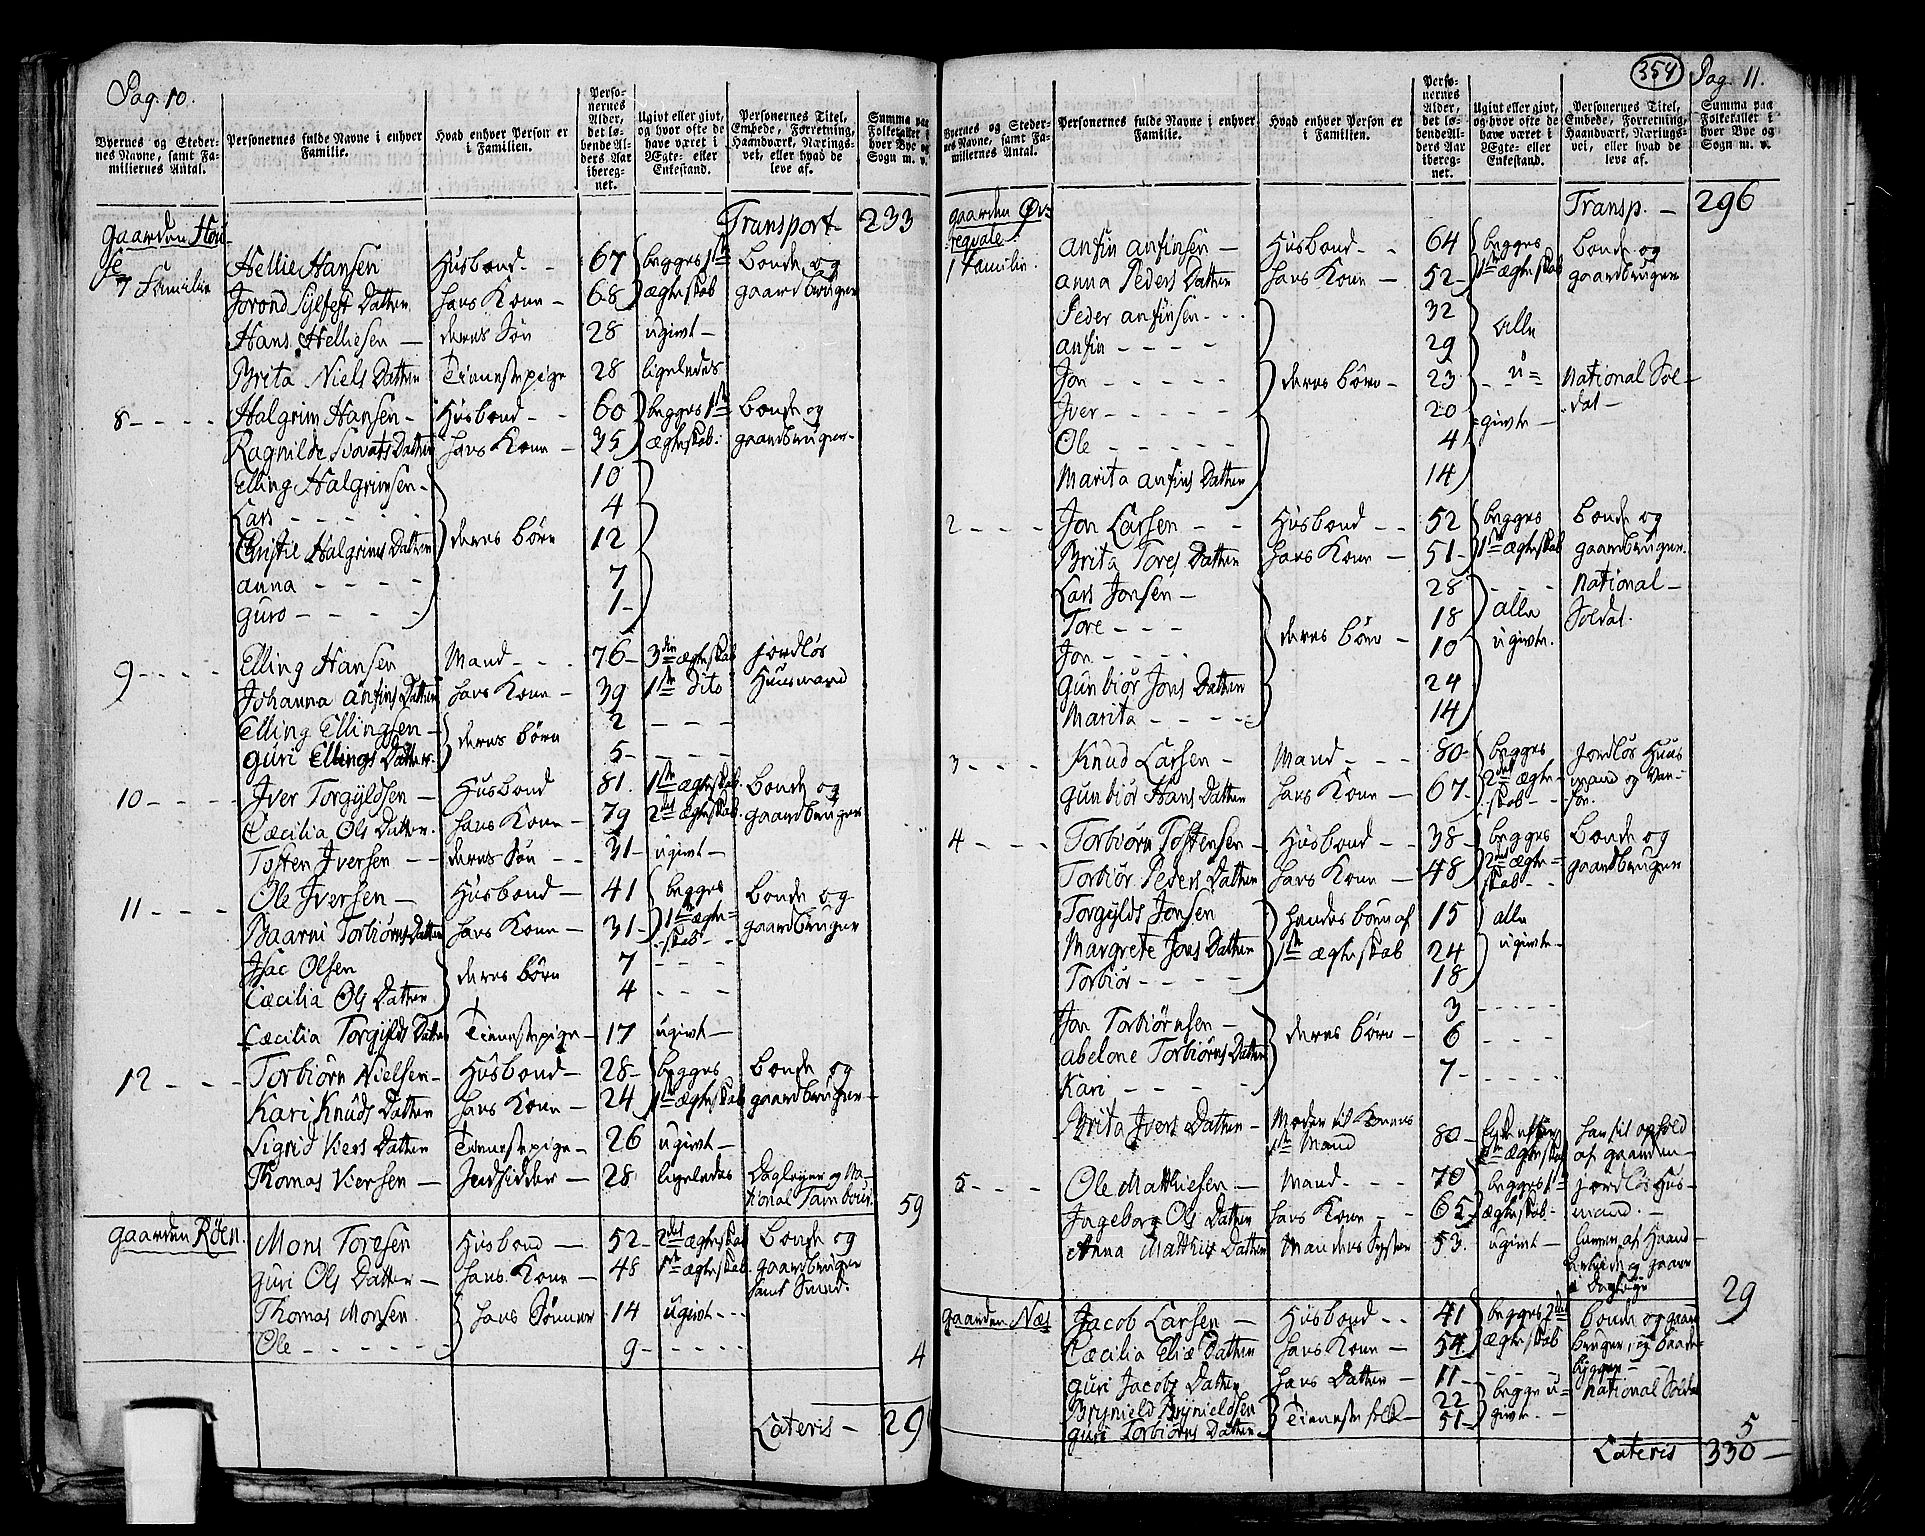 Pag. 10.
Byernes og Steder-
nes Navne, samt Fa-
miliernes Antal.
Personernes fulde Navne i enhver
Familie.
Hvad enhver Person er
i Familien.
Perso-
nernes
Alder,
det lø-
bende Al-
ders Aar
ibereg-
net.
Ugivt eller givt,
og hvor ofte de
have været i
Ægte- eller
Enkestand.
Personernes Titel,
Embede, Forretning,
Haandværk, Nærings-
vei, eller hvad de
leve af.
Summa paa
Folketallet i
hver Bye og
Sogn m. v.
Transport 233
gaarden
7 Familie
Hellie Hansen Husbond - 67 begges 1ste Bonde og
Jorond Sylfest Datter hans Kone - 68 ægteskab gaardbruger
Hans Helliesen - deres Søn 28 ugivt -
Brita Niels Datter Tienestepige 28 ligeledes
8 - - - - Halgrim Hansen - Husbond - - 60 begges 1ste bonde og
Ragnilde Siovats Datter hans Kone - 35 ægteskab: gaardbruger -
Elling Halgrimsen - 10
Lars - - - - - 4
Christie Halgrims Datter deres børn 12
anna - - - - 7
guro - - - - 1 -
9 - - - - Elling Hansen Mand - - - 76 - 3die ægteskab jordløs
Johanna anfins Datter hans Kone - 39 1ste dito Huusmand
Elling Ellingsen - deres børn 2 - - -
guri Ellings Datter. 5 - - - -
10 - - - - Jver Torgyldsen - Husbond 81. 1ste ægteskab. bonde og
Cæcilia Ols Datter. hans Kone - 79 2det ægteskab. gaardbruger
Tosten Jversen - - deres Søn - - 31 - ugivt -
11 - - - Ole Jversen - Husbond - 41 begges bonde og
Baarni Torbiørns Datter hans Kone - 31 - 1ste ægte= gaardbruger
skab - -
Jsac Olsen deres børn 7 - - -
Cæcilia Ols Datter 4 - - -
Cæcilia Torgylds Datter Tienestepige - 17 ugivt -
12 - - - Torbiørn Nielsen - Husbond - 28 - begges bonde og
Kari Knuds Datter hans Kone - 24 1ste ægteskab gaardbruger -
Sigrid Viers Datter Tienestepige - 26 ugivt -
Thomas Viersen - Jndsidder - 28 ligeledes Dagleyer og Na-
tional Tambour. 59
gaarden Røen. Mons Toresen Husbond - 52 - 2det ægteskab bonde og
guri Ols Datter - hans Kone - 48 1ste ægteskab gaardbruger
samt Smed.
Thomas Monsen hans Sønner 14 ugivt - - -
Ole - - - - - - 9 - - - - - - 4
Lateris - 29
354 Pag. 11.
Byernes og Steder-
nes Navne, samt Fa-
miliernes Antal.
Personernes fulde Navne i enhver
Familie.
Hvad enhver Person er
i Familien.
Perso-
nernes
Alder,
det lø-
bende Al-
ders Aar
ibereg-
net.
Ugivt eller givt,
og hvor ofte de
have været i
Ægte- eller
Enkestand.
Personernes Titel,
Embede, Forretning,
Haandværk, Nærings-
vei, eller hvad de
leve af.
Summa paa
Folketallet i
hver Bye og
Sogn m. v.
Transp. - 296
gaarden Øv=
regvale
1 Familie. anfin anfinsen - Husbond - - 64 begges bonde og
anna Peders Datter hans Kone - 52 - 1ste ægteskab gaardbruger
Peder anfinsen - - - 32 Alle
anfin - - - - 29
Jon - - - - - deres børn - 23 - u= National Sol-
dat -
Jver - - - - - 20
=givte -
Ole - - - - - 4
Marita anfins Datter 14
2 - - - - Jon Larsen - - Husbond - - 52 begges bonde og
Brita Tores Datter hans Kone - 51 - 1ste ægteskab gaardbruger.
Lars Jonsen - 28 - - - National -
Tore - - - deres børn - 18 alle Soldat.
Jon - - - - 10 ugivte.
Gunbiør Jons Datter 24
Marita - - - - 14
3 - - - Knud Larsen - Mand - - - 80 - begges jordløs Huus
gunbiør Hans Datter hans Kone - 67 - 2det ægte- mand og Van-
skab - - før.
4 - - - Torbiørn Tostensen - Husbond - - 38 - begges bonde og
Torbiør Peders Datter hans Kone - 48 2det ægte= gaardbruger
skab - -
Torgylds Jonsen hendes børn af 15 alle
Margrete Jons Datter 1ste ægteskab 24 ugivte -
Torbiør - - - - 18
Jon Torbiørnsen - 3 - - - -
abelone Torbiørns Datter deres børn - 6 - - -
Kari - - - - - 7 - - - - -
Brita Jvers Datter - Moder til Konens 80 - har sit ophold
1ste Mand 1ste ægteskab af gaarden -
5 - - - - Ole Matthiesen - Mand - - - 70 begges 1ste jordløs Hus-
Jngeborg Ols Datter hans Kone - - 65 ægteskab - mand. -
Anna Matthis Datter Mandens Syster 53. ugivt - af Haand-
arbeide og gaaer
i Dagleye 29
gaarden Næs Jacob Larsen - Husbond - - 41 begges 2det bonde og gaard
Cæcilia Eliæ Datter hans Kone - 54. ægteskab bruger, og baade-
bygger -
guri Jacobs Datter hans Datter - 11 - - - -
Brynield Brynieldsen Tienestefolk - 22 begge u= National Soldat
guri Torbiørns Datter - 51 - givte - - 5
Lateris 330 -